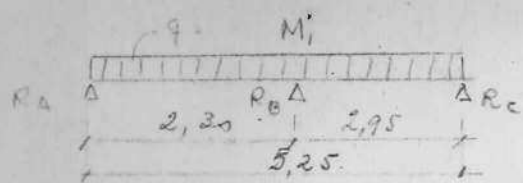 q M₁
R_A R_B R_C
2,30 2,95
5,25